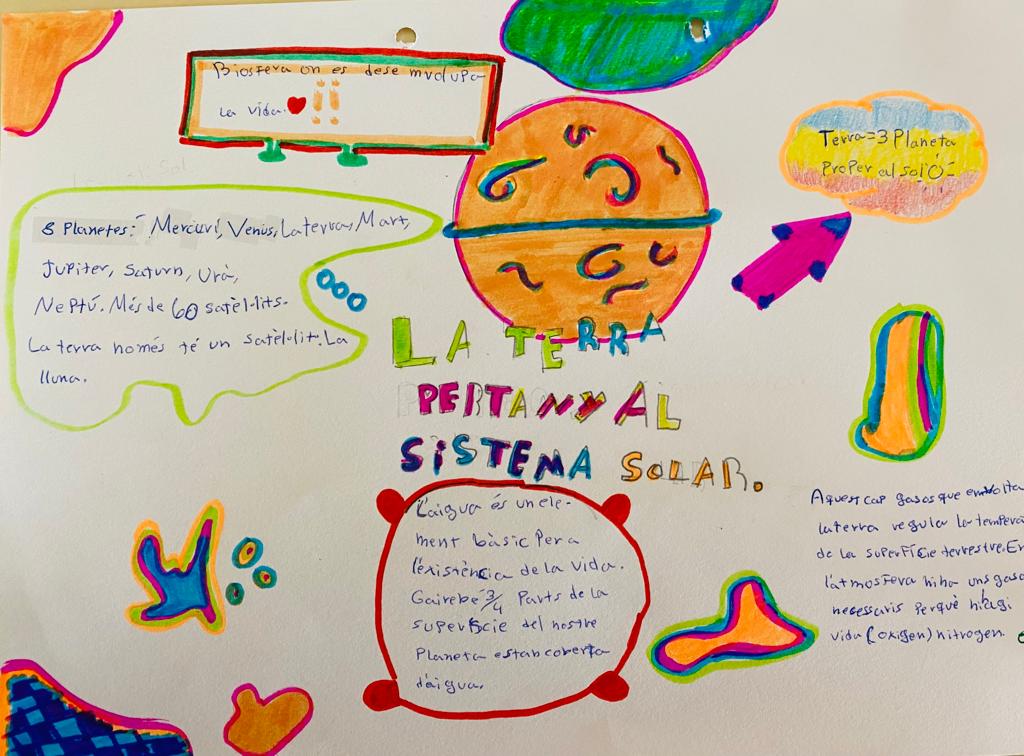 Biosfera on es desemvolupa
la vida. ❤ !!
Terra=3 Planeta
Proper al sol
8 Planetes: Mercuri, Venus, La terra, Mart,
Jupiter, Saturn, Urà,
Neptú. Més de 60 satèl·lits.
La terra només té un satèl·lit. La
lluna.
LA TERRA
PERTANY AL
SISTEMA SOLAR.
L'aigua és un ele-
ment bàsic Per a
l'existència de la vida.
Gairebé 3/4 Parts de la
superfície del nostre
Planeta estan coberta
d'aigua.
Aquest cap gasos que embolta
la terra regula la tempera
de la superfície terrestre. En
l'atmosfera hi ha uns gasos
necessaris Perquè hi hagi
vida (oxigen) nitrogen.